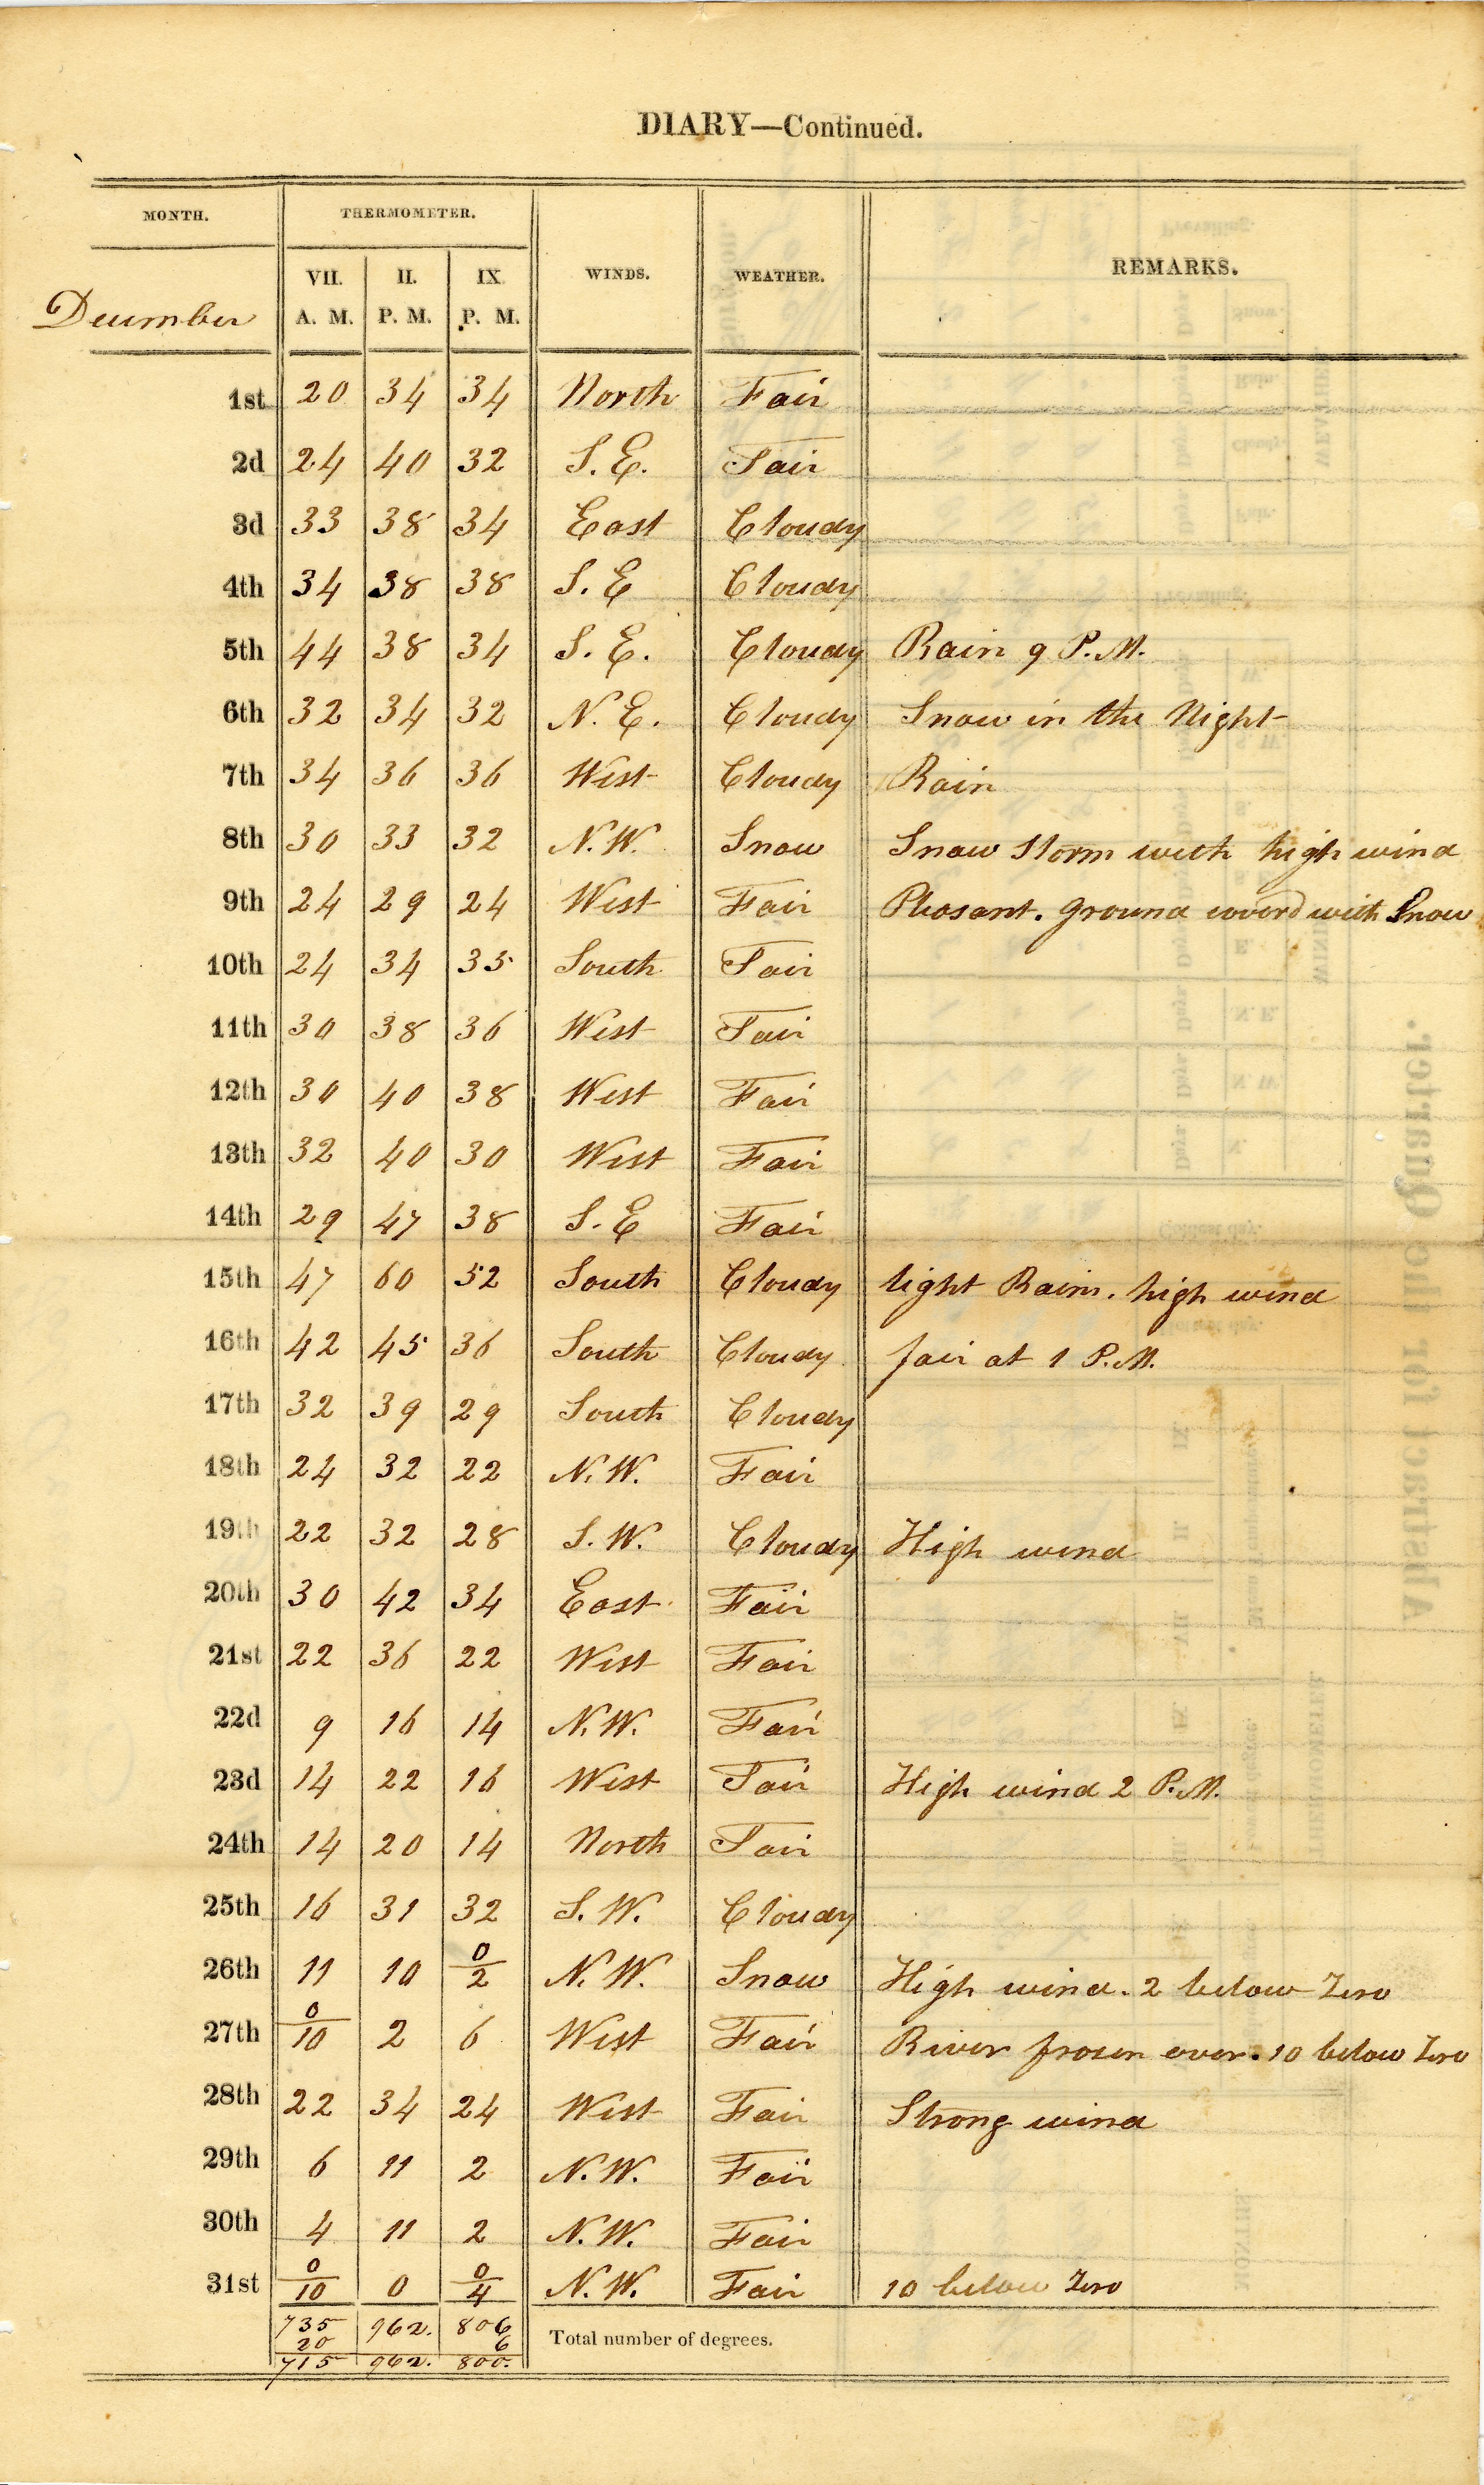 DIARY—Continued.
MONTH. THERMOMETER. WINDS. WEATHER. REMARKS.
VII. II. IX
December A. M. P. M. P. M.
1st 20 34 34 North Fair
2d 24 40 32 S. E. Fair
3d 33 38 34 East Cloudy
4th 34 38 38 S. E Cloudy
5th 44 38 34 S. E. Cloudy Rain 9 P. M.
6th 32 34 32 N. E. Cloudy Snow in the Night
7th 34 36 36 West Cloudy Rain
8th 30 33 32 N. W. Snow Snow Storm with high wind
9th 24 29 24 West Fair Pleasant. ground coverd with Snow
10th 24 34 35 South Fair
11th 30 38 36 West Fair
12th 30 40 38 West Fair
13th 32 40 30 West Fair
14th 29 47 38 S. E Fair
15th 47 60 52 South Cloudy light Rain. high wind
16th 42 45 36 South Cloudy fair at 1 P. M.
17th 32 39 29 South Cloudy
18th 24 32 22 N. W. Fair
19th 22 32 28 S. W. Cloudy High wind
20th 30 42 34 East Fair
21st 22 36 22 West Fair
22d 9 16 14 N. W. Fair
23d 14 22 16 West Fair High wind 2 P. M.
24th 14 20 14 North Fair
25th 16 31 32 S. W. Cloudy
26th 11 10 0/2 N. W. Snow High wind. 2 below Zero
27th 0/10 2 6 West Fair River frozen over. 10 below Zero
28th 22 34 24 West Fair Strong wind
29th 6 11 2 N. W. Fair
30th 4 11 2 N. W. Fair
31st 0/10 0 0/4 N. W. Fair 10 below Zero
735 962. 806
20 6 Total number of degrees.
715 962. 800.